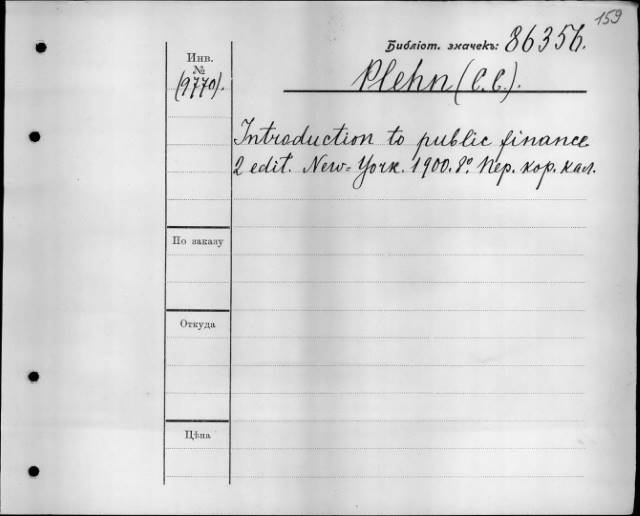 159
Библіот. значекъ: 86356.
Инв.
№
(9770).
Plehn (C.C.).
Introduction to public finance
2 edit. New=York. 1900. 8º. Пер. кор. кал.
По заказу
Откуда
Цѣна